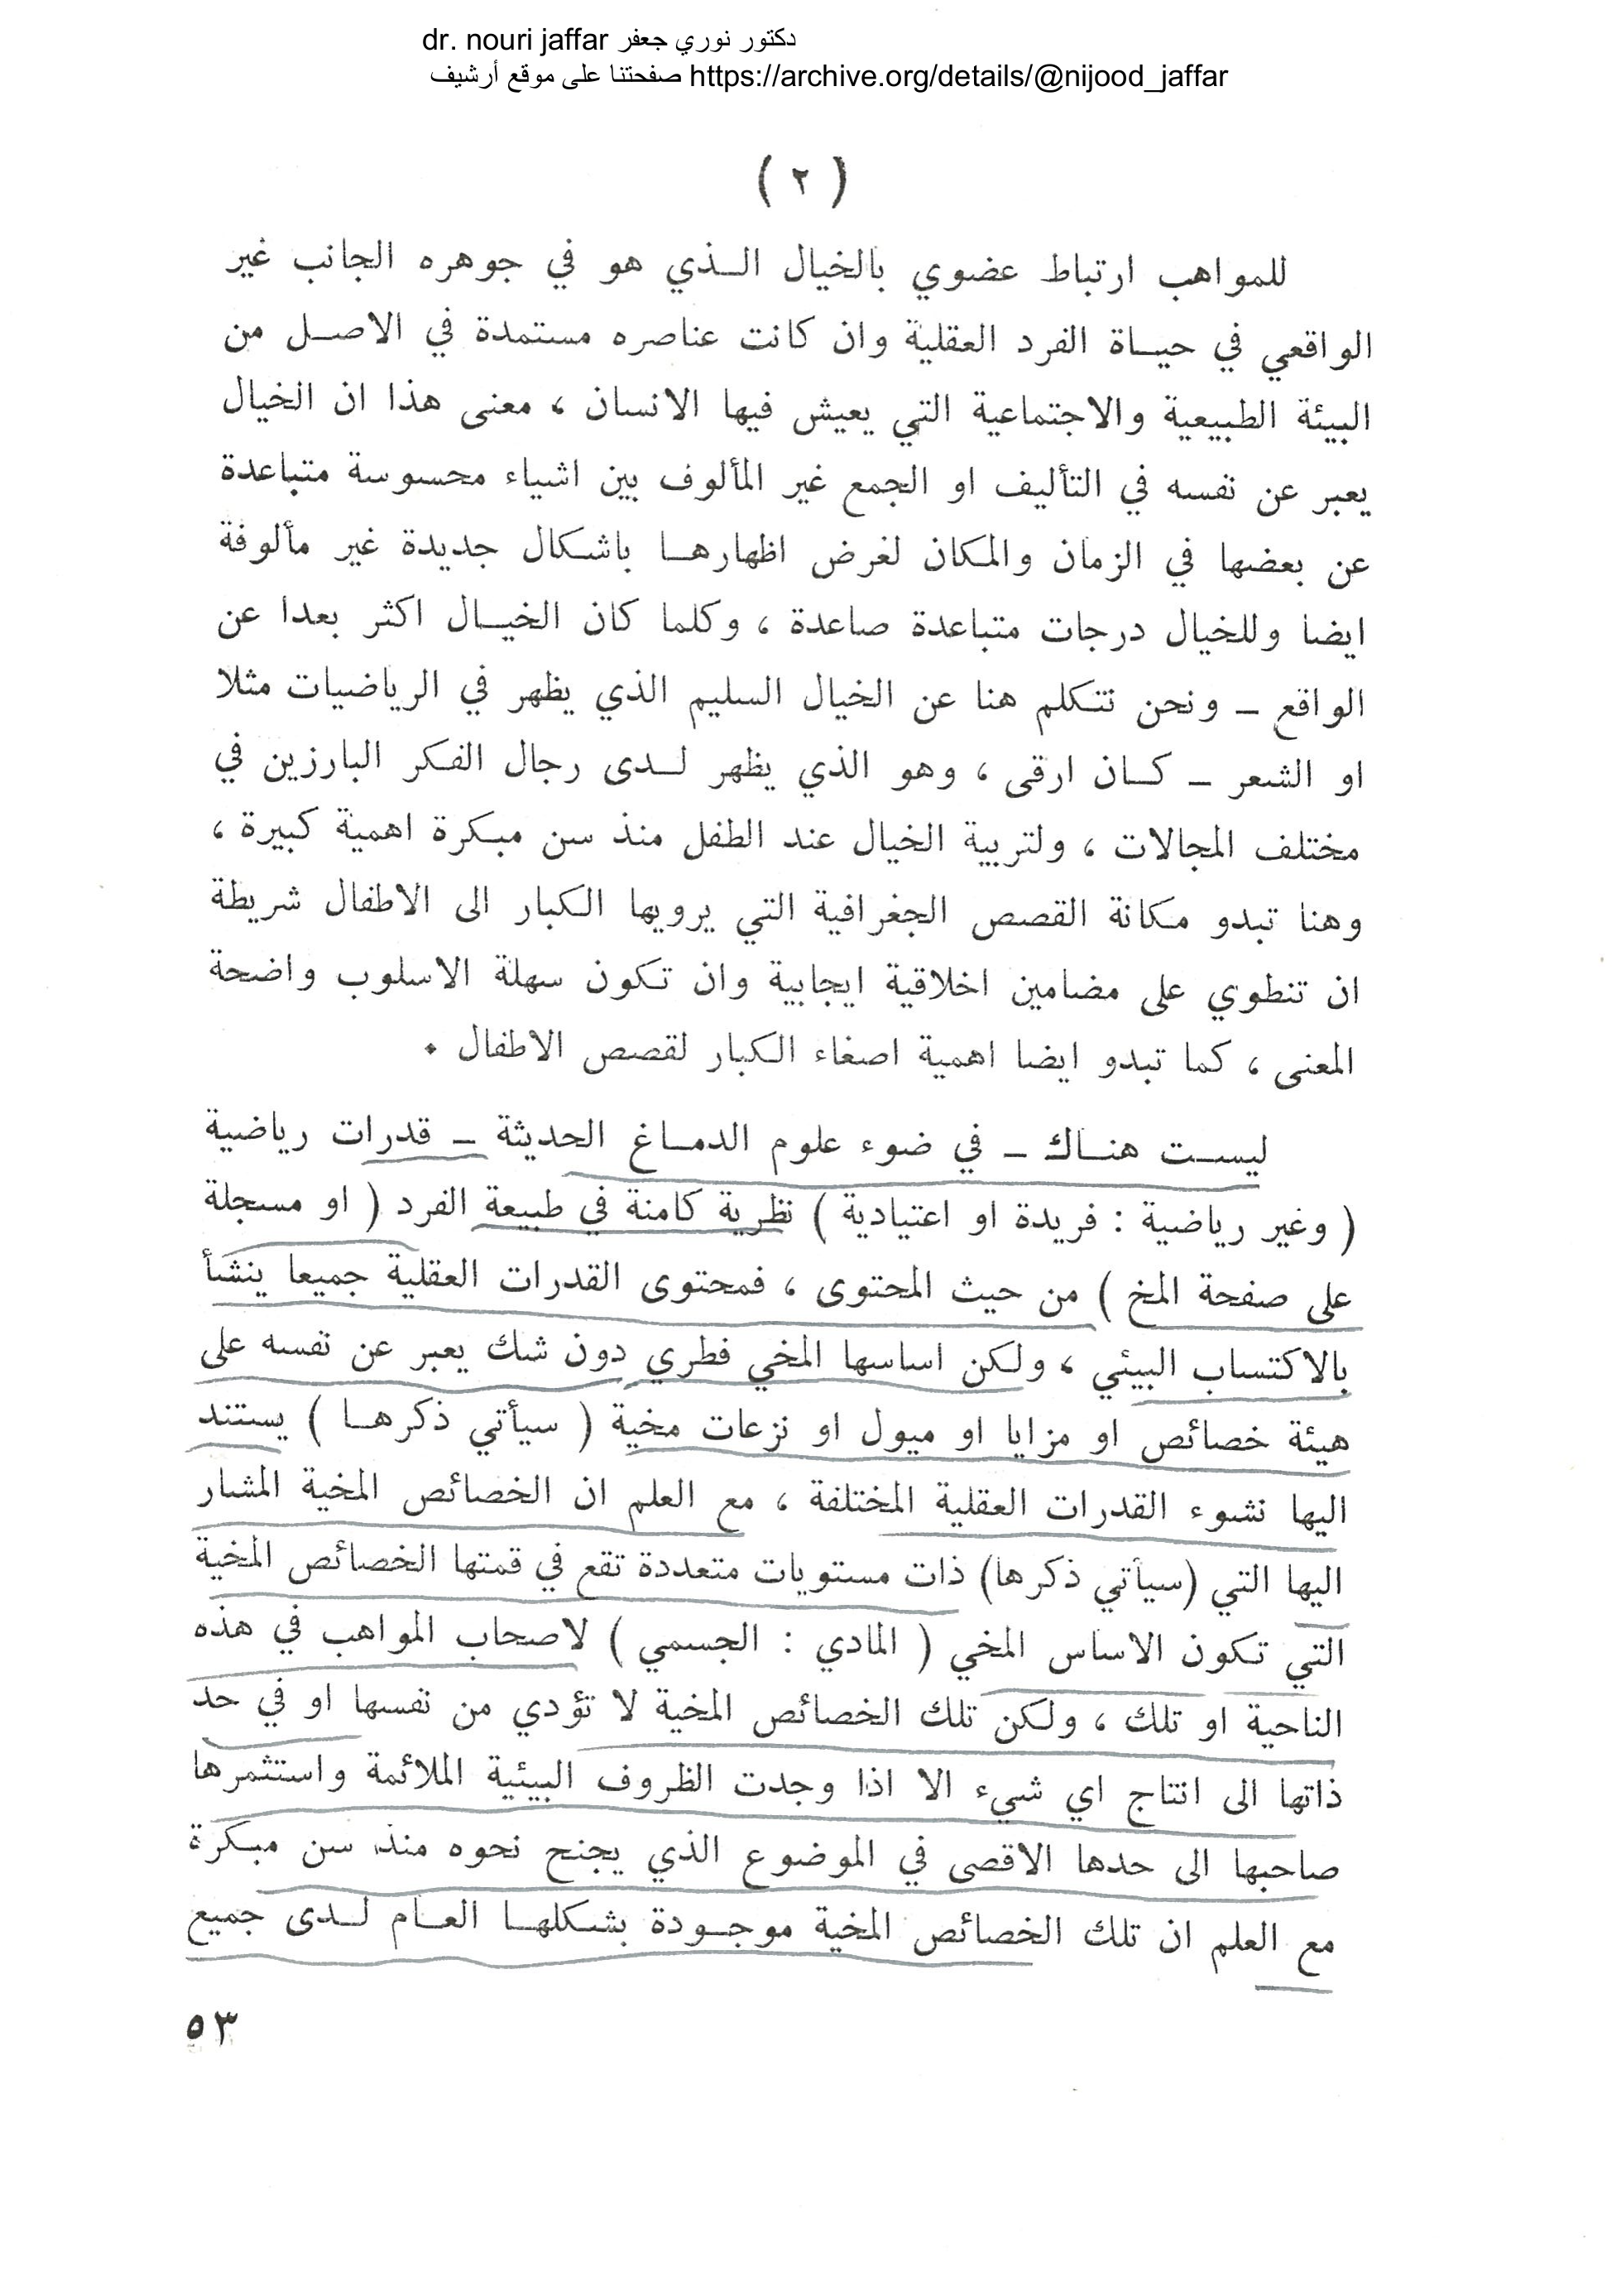 dr. nouri jaffar دكتور نوري جعفر
صفحتنا على موقع أرشيف https://archive.org/details/@nijood_jaffar
( ٢ )
للمواهب ارتباط عضوي بالخيال الـذي هو في جوهره الجانب غير
الواقعي في حيـاة الفرد العقلية وان كانت عناصره مستمدة في الاصـل من
البيئة الطبيعية والاجتماعية التي يعيش فيها الانسان ، معنى هذا ان الخيال
يعبر عن نفسه في التأليف او الجمع غير المألوف بين اشياء محسوسة متباعدة
عن بعضها في الزمان والمكان لغرض اظهارهـا باشكال جديدة غير مألوفة
ايضا وللخيال درجات متباعدة صاعدة ، وكلما كان الخيـال اكثر بعدا عن
الواقع – ونحن نتكلم هنا عن الخيال السليم الذي يظهر في الرياضيات مثلا
او الشعر – كـان ارقى ، وهو الذي يظهر لـدى رجال الفكر البارزين في
مختلف المجالات ، ولتربية الخيال عند الطفل منذ سن مبكرة اهمية كبيرة ،
وهنا تبدو مكانة القصص الجغرافية التي يرويها الكبار الى الاطفال شريطة
ان تنطوي على مضامين اخلاقية ايجابية وان تكون سهلة الاسلوب واضحة
المعنى ، كما تبدو ايضا اهمية اصغاء الكبار لقصص الاطفال .
ليسـت هنـاك – في ضوء علوم الدمـاغ الحديثة – قدرات رياضية
( وغير رياضية : فريدة او اعتيادية ) نظرية كامنة في طبيعة الفرد ( او مسجلة
على صفحة المخ ) من حيث المحتوى ، فمحتوى القدرات العقلية جميعا ينشأ
بالاكتساب البيئي ، ولكن اساسها المخي فطري دون شك يعبر عن نفسه على
هيئة خصائص او مزايا او ميول او نزعات مخية ( سيأتي ذكرهـا ) يستند
اليها نشوء القدرات العقلية المختلفة ، مع العلم ان الخصائص المخية المشار
اليها التي (سيأتي ذكرها) ذات مستويات متعددة تقع في قمتها الخصائص المخية
التي تكون الاساس المخي ( المادي : الجسمي ) لاصحاب المواهب في هذه
الناحية او تلك ، ولكن تلك الخصائص المخية لا تؤدي من نفسها او في حد
ذاتها الى انتاج اي شيء الا اذا وجدت الظروف البيئية الملائمة واستثمرها
صاحبها الى حدها الاقصى في الموضوع الذي يجنح نحوه منذ سن مبكرة
مع العلم ان تلك الخصائص المخية موجـودة بشكلهـا العـام لـدى جميع
٥٣